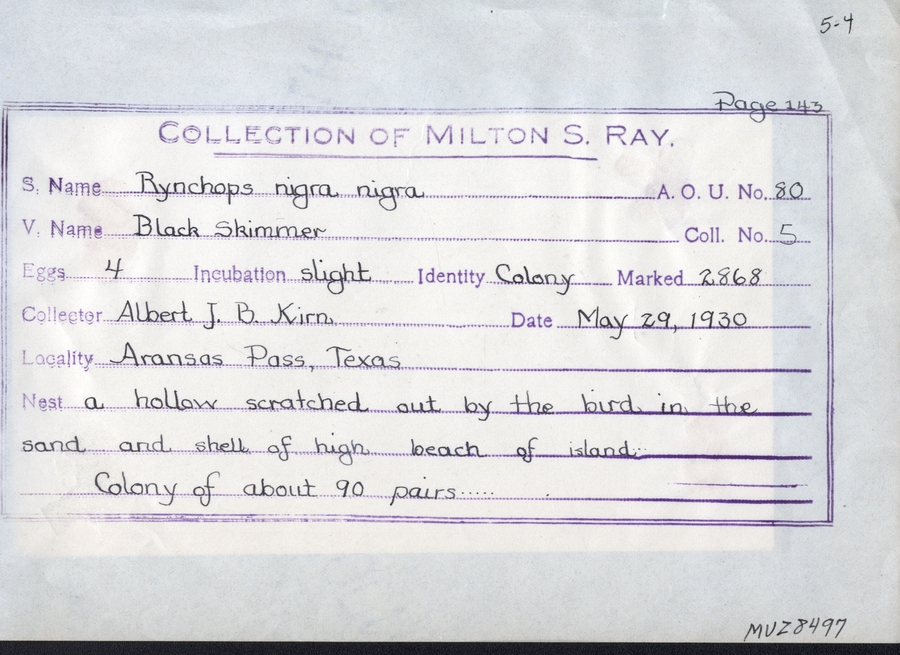 5-4
Page 143
COLLECTION OF MILTON S. RAY.
S. Name Rynchops nigra nigra A. O. U. No. 80
V. Name Black Skimmer Coll. No. 5
Eggs 4 Incubation slight Identity Colony Marked 2868
Collector Albert J. B. Kirn Date May 29, 1930
Locality Aransas Pass, Texas
Nest a hollow scratched out by the bird in the
sand and shell of high beach of island
Colony of about 90 pairs.....
MVZ8497